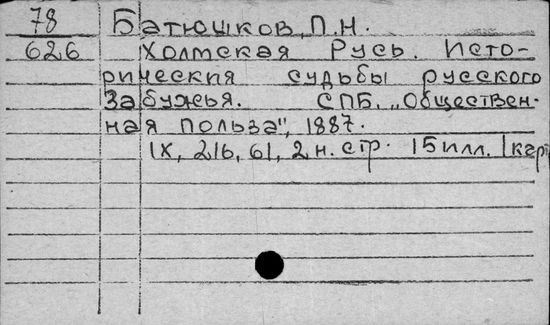 78 Батюшков, П.Н.
626 Холмская Русь. Исто-
рическия судьбы русского
Забужья. СПБ. „Обществен-
ная польза", 1887.
IX, 216, 61, 2 н. стр. 15 илл. 1 карт